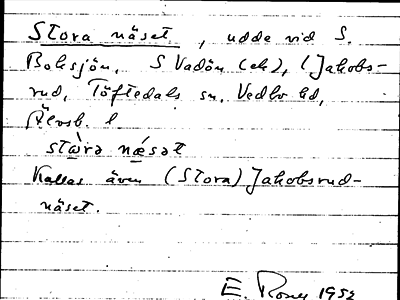 Stora näset, udde vid S.
Boksjön. S Vadön (ek), l Jakobs-
rud, Töftedals sn, Vedbo hd,
Älvsb. l
stὼrə nǽsət
Kallas även (Stora) Jakobsrud-
näset.
E. Rony 1952